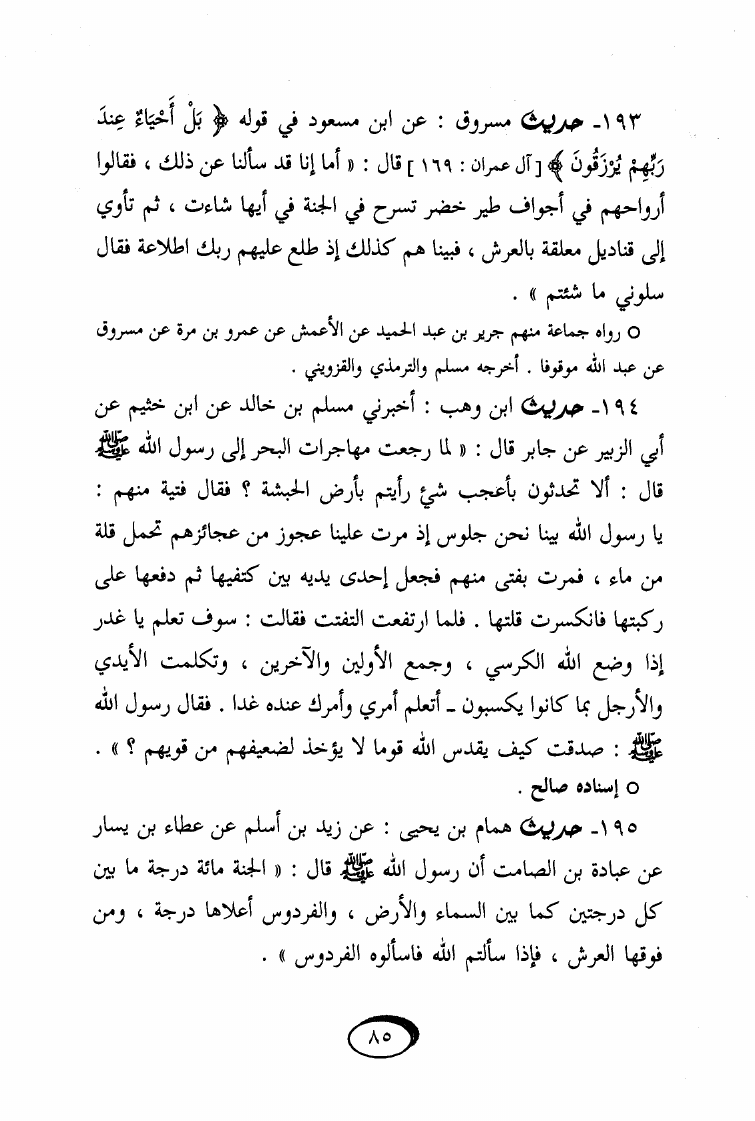 ١٩٣ـ حديث مسروق : عن ابن مسعود في قوله ﴿ بَلْ أَحْيَاءٌ عِندَ
رَبِّهِمْ يُرْزَقُونَ ﴾ [ آل عمران : ١٦٩ ] قال : « أما إنا قد سألنا عن ذلك ، فقالوا
أرواحهم في أجواف طير خضر تسرح في الجنة في أيها شاءت ، ثم تأوي
إلى قناديل معلقة بالعرش ، فبينا هم كذلك إذ طلع عليهم ربك اطلاعة فقال
سلوني ما شئتم » .
○ رواه جماعة منهم جرير بن عبد الحميد عن الأعمش عن عمرو بن مرة عن مسروق
عن عبد الله موقوفا . أخرجه مسلم والترمذي والقزويني .
١٩٤ـ حديث ابن وهب : أخبرني مسلم بن خالد عن ابن خثيم عن
أبي الزبير عن جابر قال : « لما رجعت مهاجرات البحر إلى رسول الله ﷺ
قال : ألا تحدثون بأعجب شئ رأيتم بأرض الحبشة ؟ فقال فتية منهم :
يا رسول الله بينا نحن جلوس إذ مرت علينا عجوز من عجائزهم تحمل قلة
من ماء ، فمرت بفتى منهم فجعل إحدى يديه بين كتفيها ثم دفعها على
ركبتها فانكسرت قلتها . فلما ارتفعت التفتت فقالت : سوف تعلم يا غدر
إذا وضع الله الكرسي ، وجمع الأولين والآخرين ، وتكلمت الأيدي
والأرجل بما كانوا يكسبون ـ أتعلم أمري وأمرك عنده غدا . فقال رسول الله
ﷺ : صدقت كيف يقدس الله قوما لا يؤخذ لضعيفهم من قويهم ؟ » .
○ إسناده صالح .
١٩٥ـ حديث همام بن يحيى : عن زيد بن أسلم عن عطاء بن يسار
عن عبادة بن الصامت أن رسول الله ﷺ قال : « الجنة مائة درجة ما بين
كل درجتين كما بين السماء والأرض ، والفردوس أعلاها درجة ، ومن
فوقها العرش ، فإذا سألتم الله فاسألوه الفردوس » .
٨٥